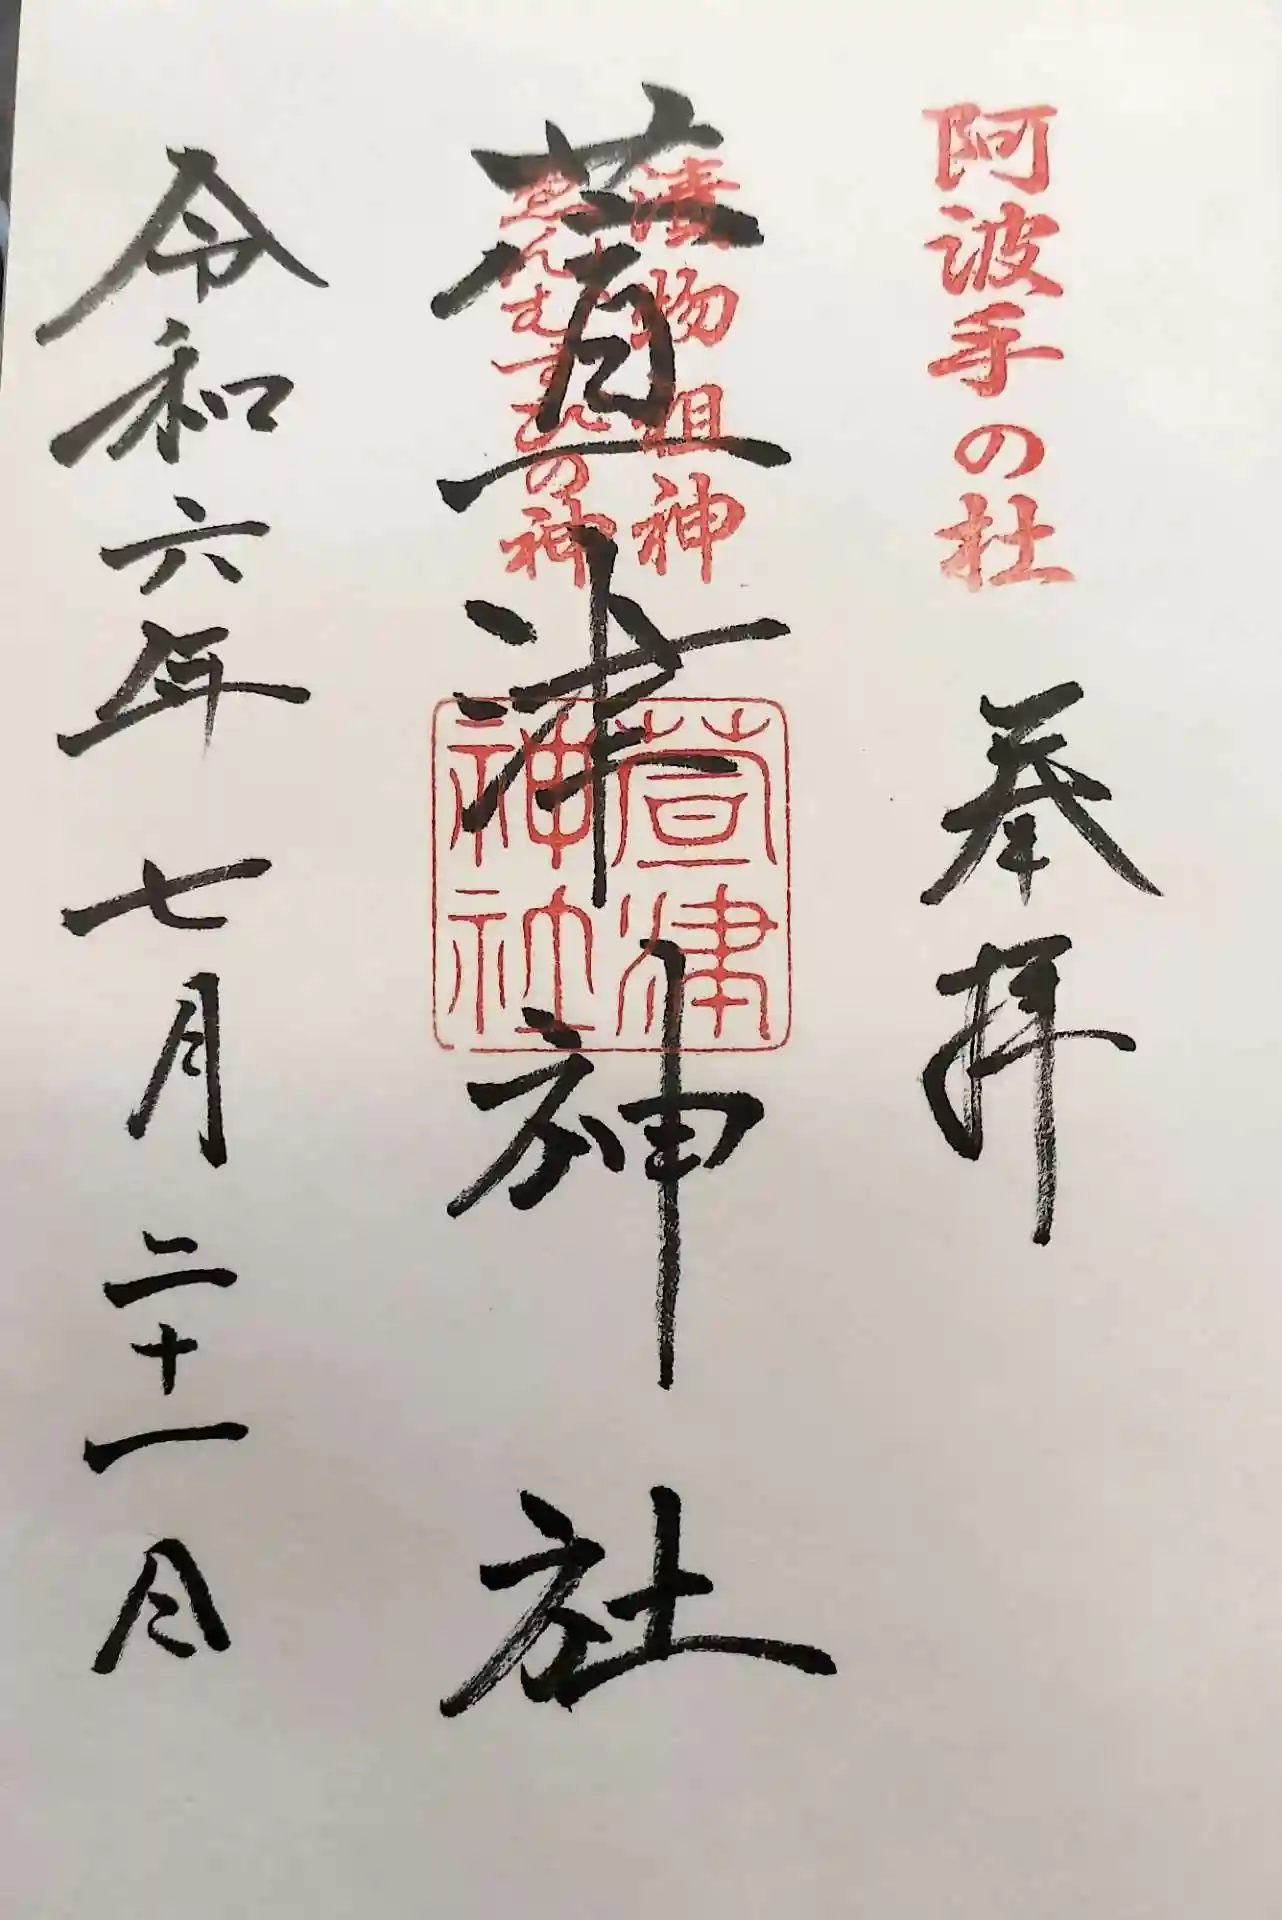 阿波手の杜
奉拝
漬物祖神
ゑんむすひの神
萱津神社
萱津
神社
令和六年七月二十一日